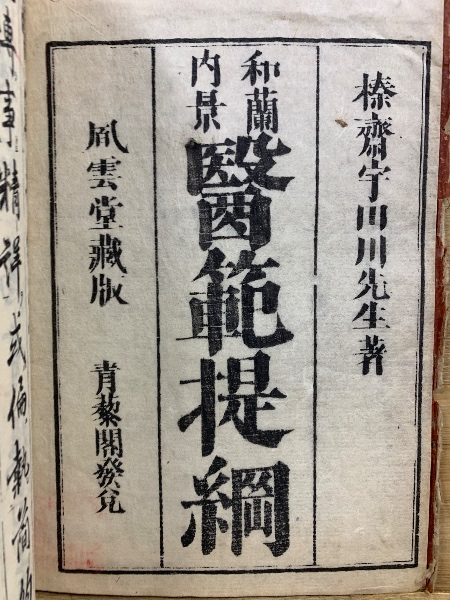 榛齋宇田川先生著
和蘭
内景
醫範提綱
風雲堂藏版
青藜閣發兌
專事精詳或偏執